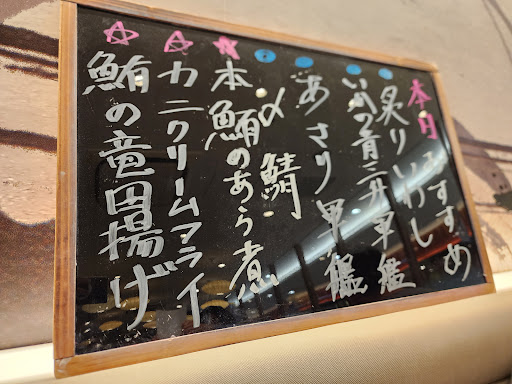 本日おすすめ
炙りいわし
いかの青三升軍艦
あさり軍艦
〆鯖
本鮪のあら煮
カニクリームフライ
鮪の竜田揚げ